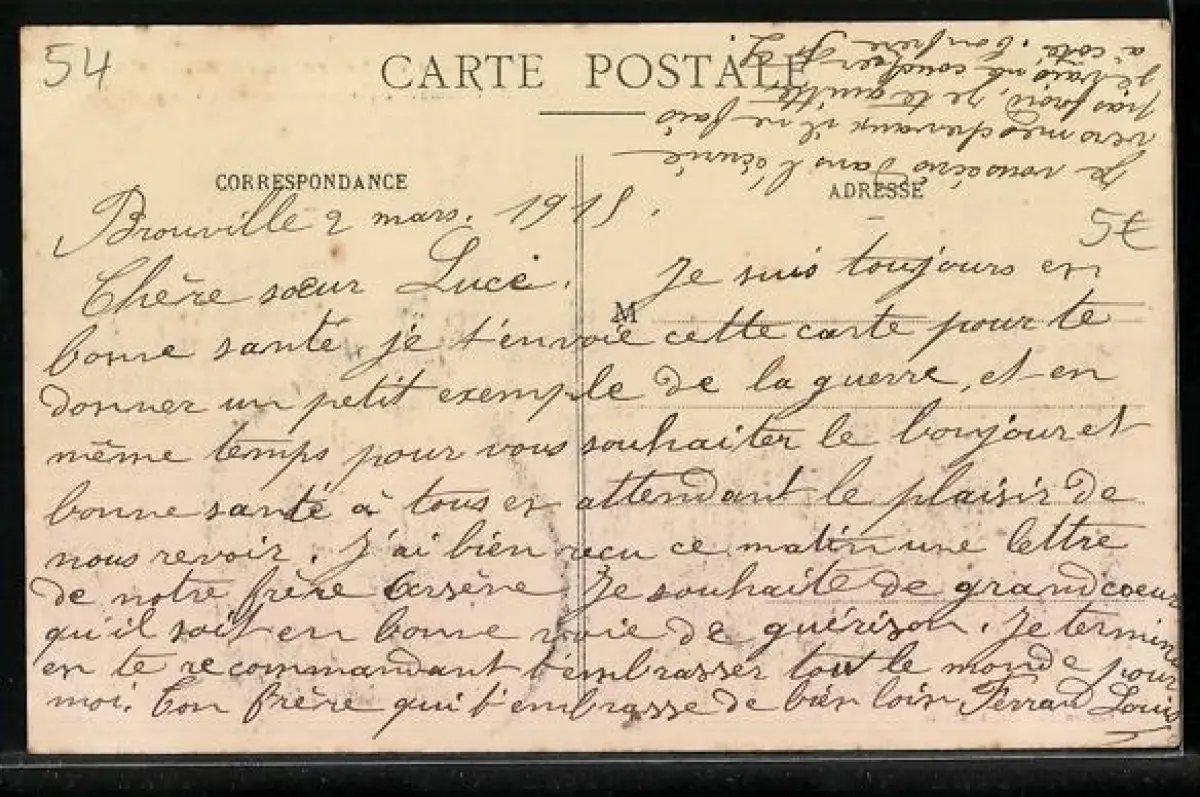 54
CARTE POSTALE
CORRESPONDANCE
ADRESSE
5€
M
Brouville 2 mars. 1915.
Chère sœur Luci. Je suis toujours en
bonne santé je t'envoie cette carte pour te
donner un petit exemple de la guerre, et en
même temps pour vous souhaiter le bonjour et
bonne santé à tous en attendant le plaisir de
nous revoir. J'ai bien reçu ce matin une lettre
de notre frère Arsène Je souhaite de grand coeur
qu'il soit en bonne voie de guérison. Je termine
en te recommandant t'embrasser tout le monde pour
moi. Ton frère qui t'embrasse de bien loin Ferrand Louis
Je vous écris dans l'écurie
vers mes chevaux il ne fais
pas froid, je te quitte
je vais me coucher
à coté. Ton frère